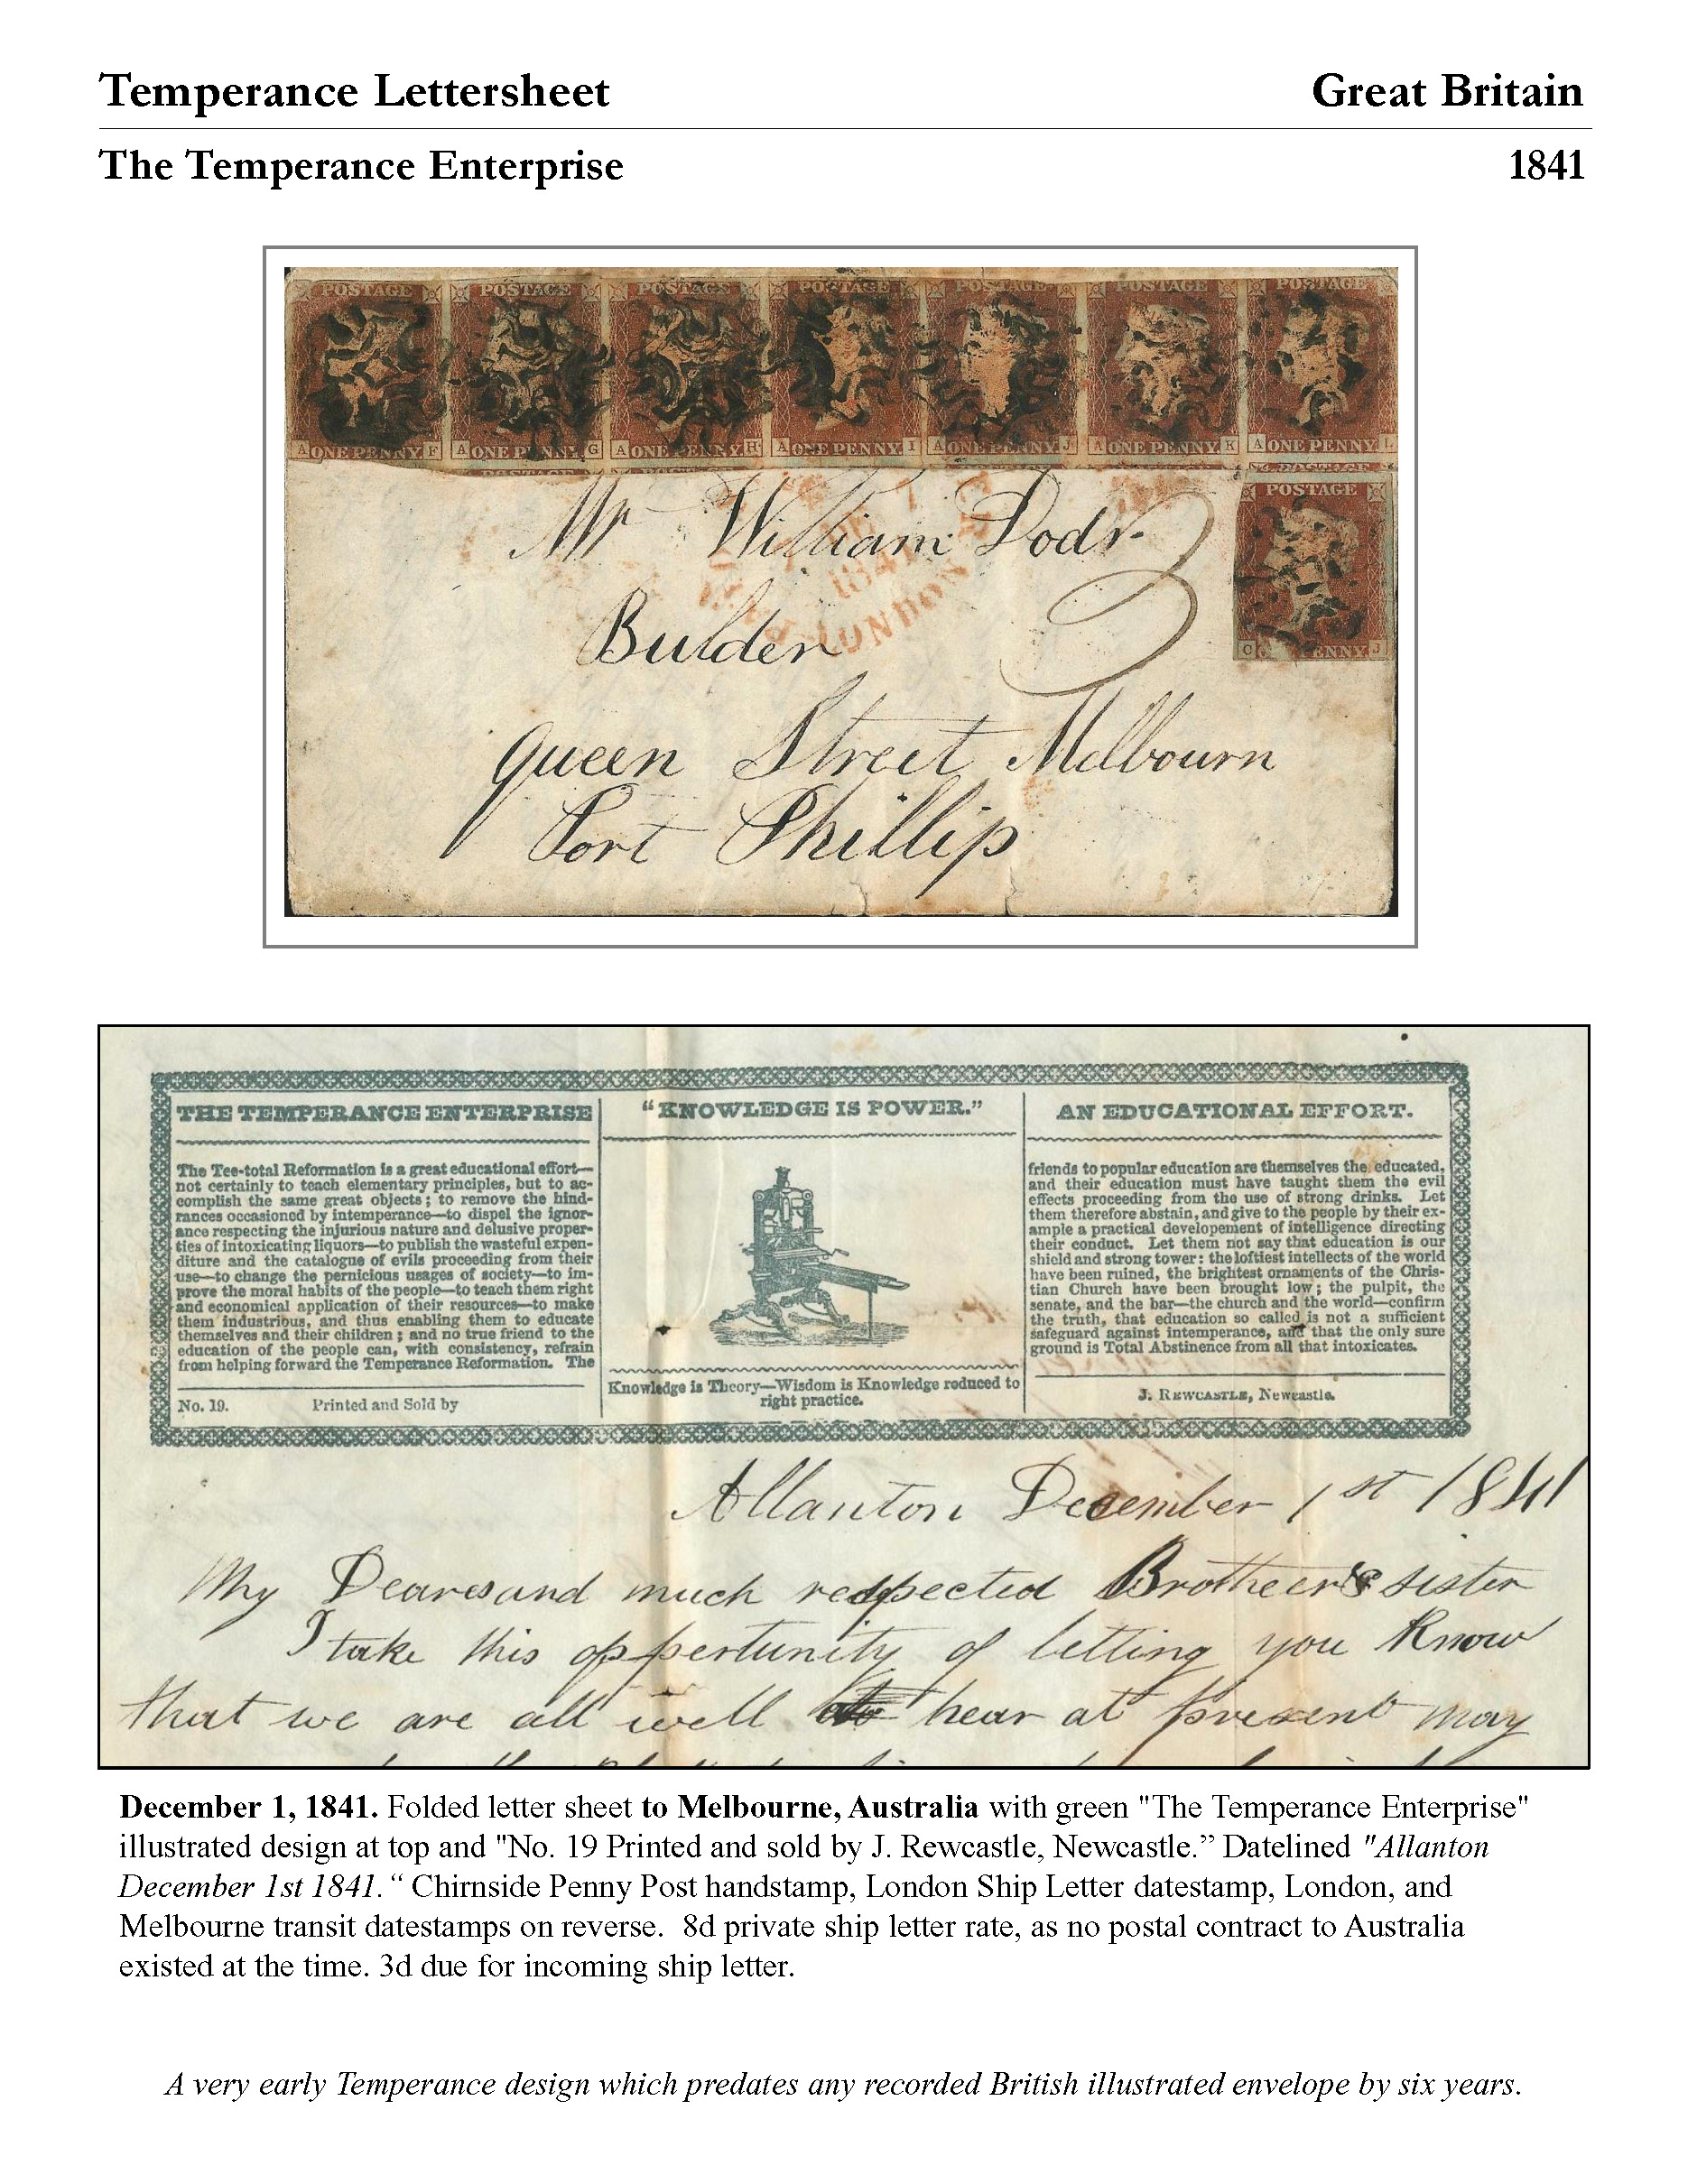 Temperance Lettersheet Great Britain
The Temperance Enterprise 1841
POSTAGE POSTAGE POSTAGE POSTAGE POSTAGE POSTAGE POSTAGE
A ONE PENNY F A ONE PENNY G A ONE PENNY H A ONE PENNY I A ONE PENNY J A ONE PENNY K A ONE PENNY L
POSTAGE
Mr William Dods
3
1841
LONDON
Bulder
C PENNY J
Queen Street Melbourn
Port Phillip
THE TEMPERANCE ENTERPRISE
The Tee-total Reformation is a great educational effort—
not certainly to teach elementary principles, but to ac-
complish the same great objects; to remove the hind-
rances occasioned by intemperance—to dispel the ignor-
ance respecting the injurious nature and delusive proper-
ties of intoxicating liquors—to publish the wasteful expen-
diture and the catalogue of evils proceeding from their
use—to change the pernicious usages of society—to im-
prove the moral habits of the people—to teach them right
and economical application of their resources—to make
them industrious, and thus enabling them to educate
themselves and their children; and no true friend to the
education of the people can, with consistency, refrain
from helping forward the Temperance Reformation. The
No. 19. Printed and Sold by
"KNOWLEDGE IS POWER."
Knowledge is Theory—Wisdom is Knowledge reduced to
right practice.
AN EDUCATIONAL EFFORT.
friends to popular education are themselves the educated,
and their education must have taught them the evil
effects proceeding from the use of strong drinks. Let
them therefore abstain, and give to the people by their ex-
ample a practical developement of intelligence directing
their conduct. Let them not say that education is our
shield and strong tower: the loftiest intellects of the world
have been ruined, the brightest ornaments of the Chris-
tian Church have been brought low; the pulpit, the
senate, and the bar—the church and the world—confirm
the truth, that education so called is not a sufficient
safeguard against intemperance, and that the only sure
ground is Total Abstinence from all that intoxicates.
J. REWCASTLE, Newcastle.
Allanton December 1st 1841
My Deares and much respected Brotheer & sister
I take this oppertunity of letting you Know
that we are all well hear at present may
December 1, 1841. Folded letter sheet to Melbourne, Australia with green "The Temperance Enterprise"
illustrated design at top and "No. 19 Printed and sold by J. Rewcastle, Newcastle.” Datelined "Allanton
December 1st 1841.“ Chirnside Penny Post handstamp, London Ship Letter datestamp, London, and
Melbourne transit datestamps on reverse. 8d private ship letter rate, as no postal contract to Australia
existed at the time. 3d due for incoming ship letter.
A very early Temperance design which predates any recorded British illustrated envelope by six years.